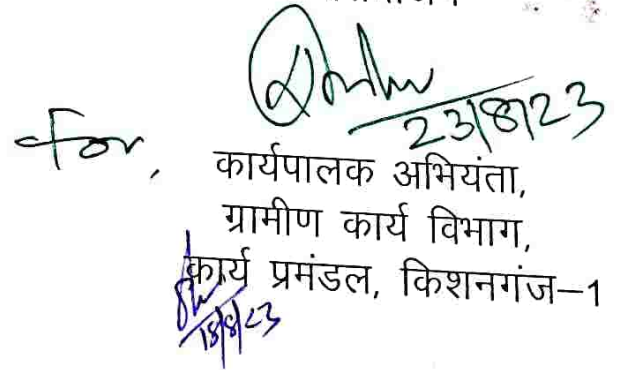 23/8/23
For,
कार्यपालक अभियंता,
ग्रामीण कार्य विभाग,
कार्य प्रमंडल, किशनगंज–1
18/8/23